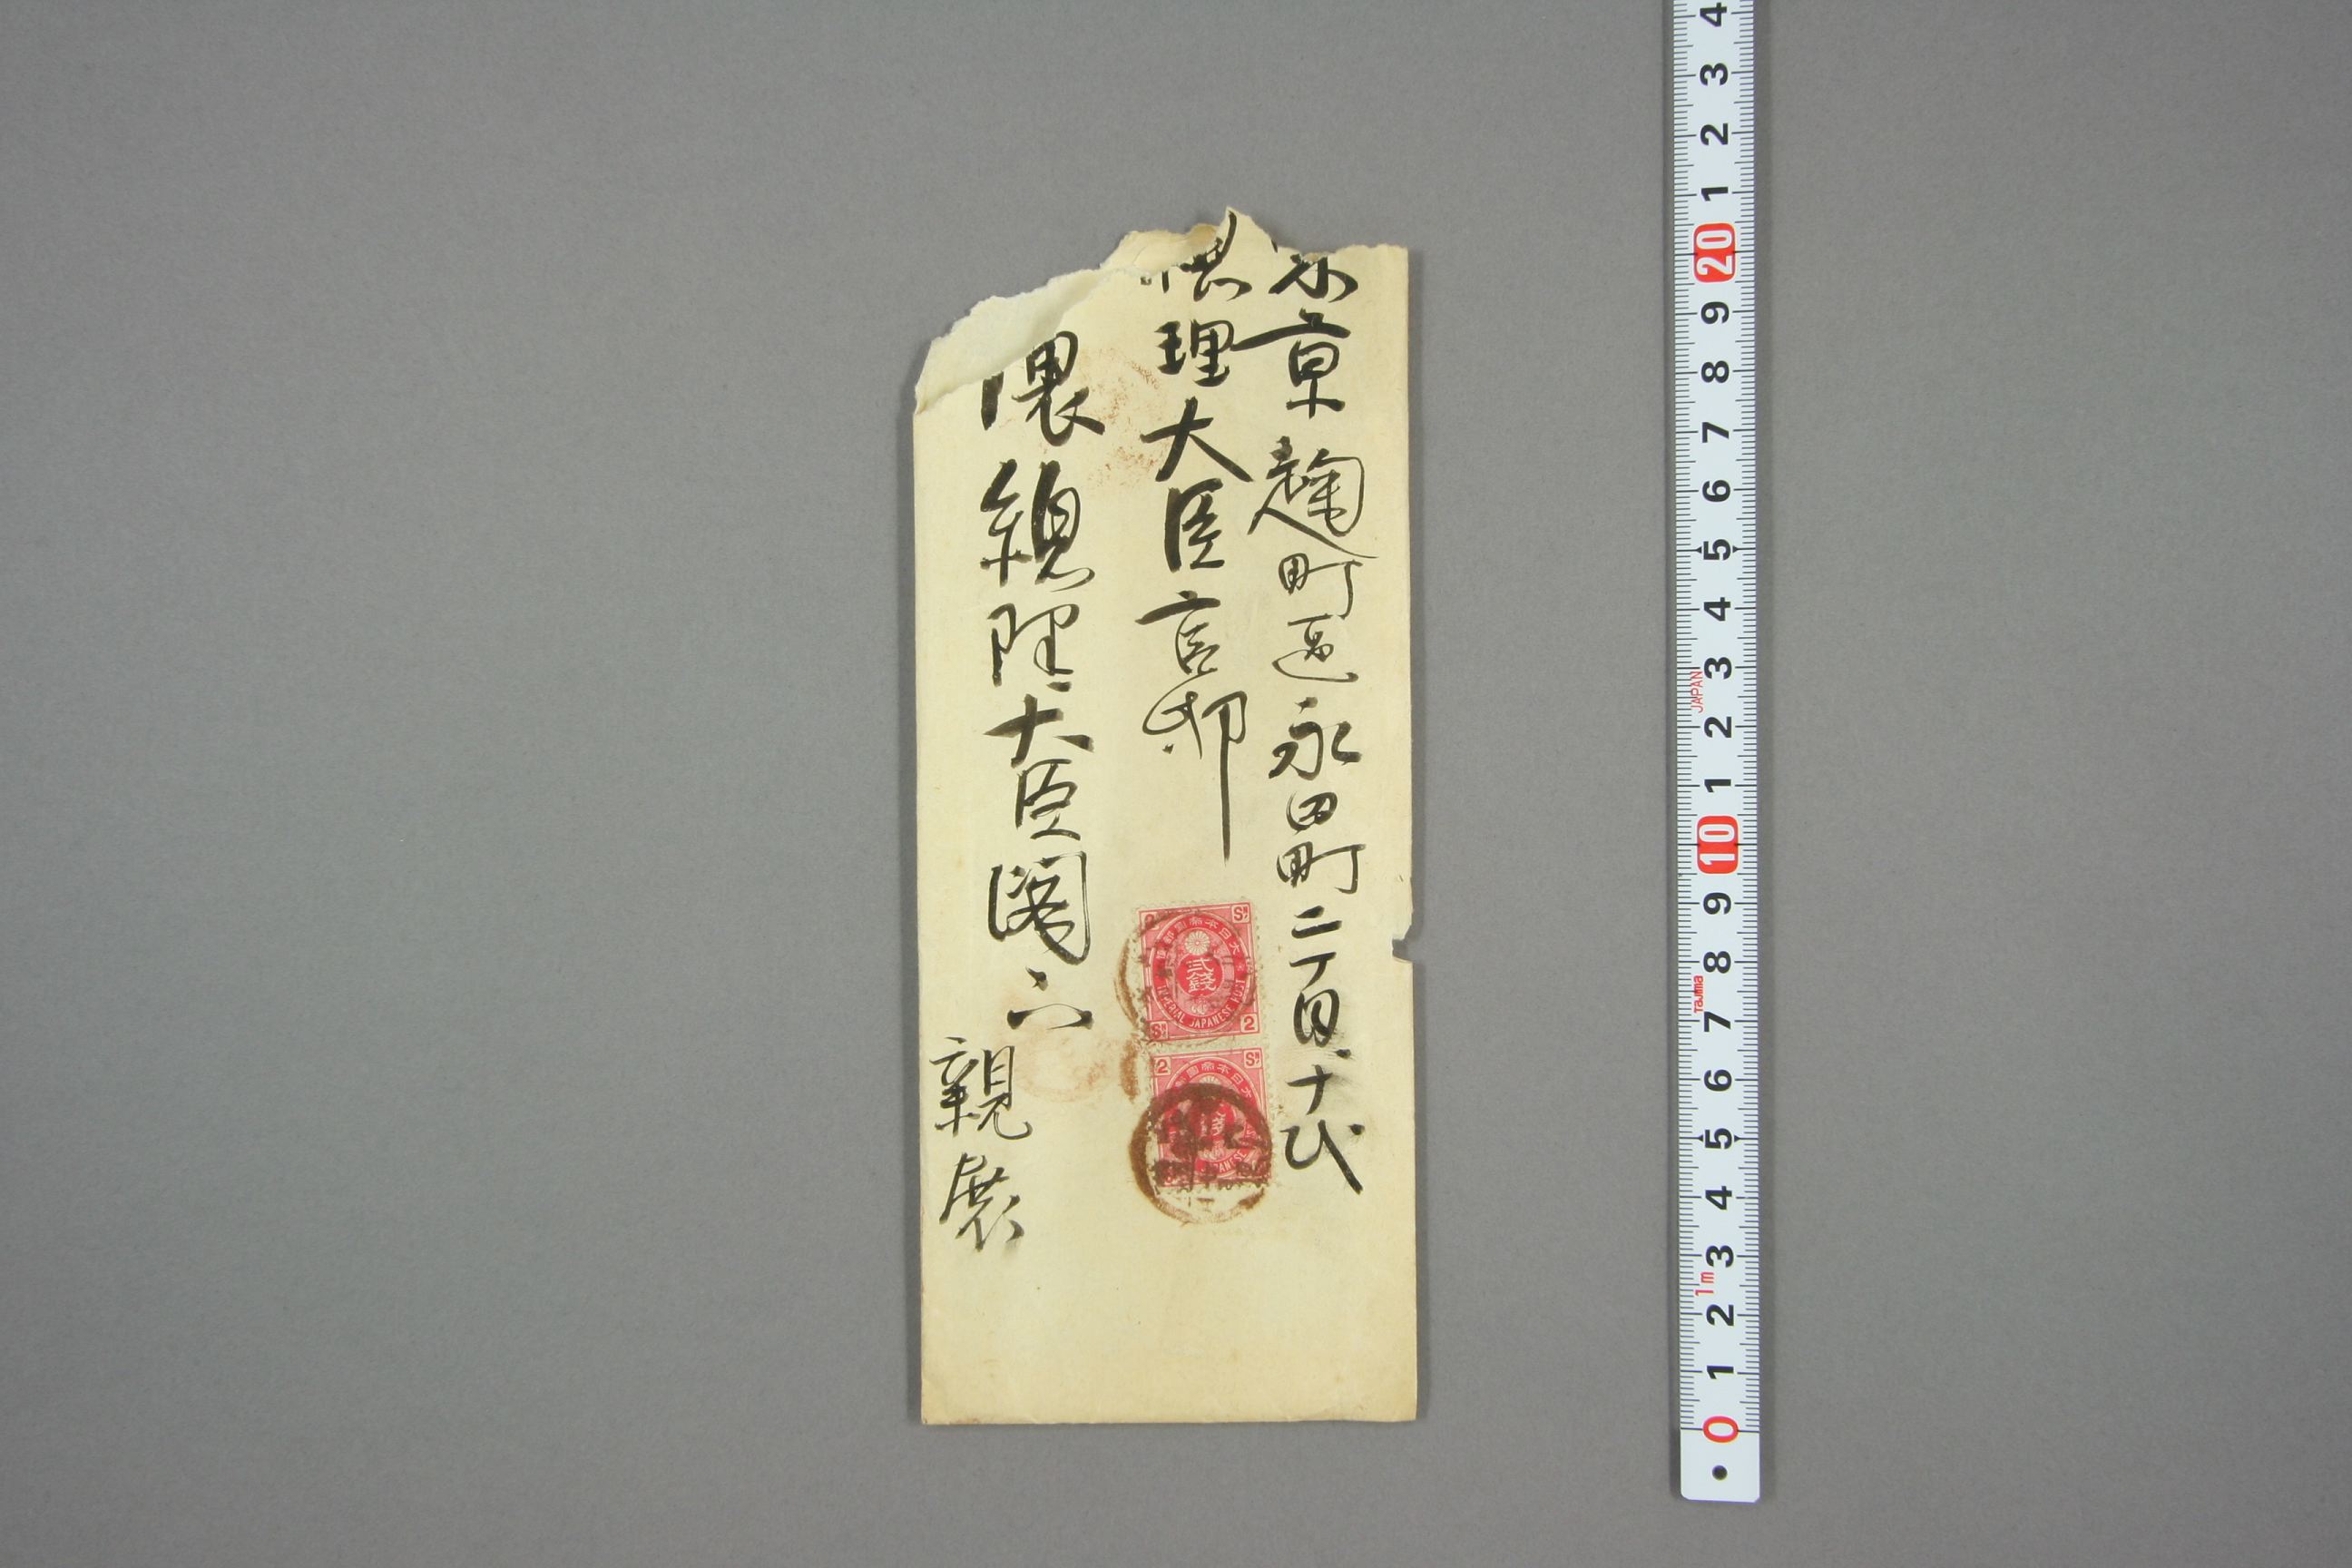 東京麹町區永田町二丁目十
總理大臣官邸
隈總理大臣閣下
親展
大日本帝國郵便
弐錢
IMPERIAL JAPANESE POST
2 Sn
Sn 2
2 Sn
大日本帝國
JAPANESE
4
3
2
1
20
9
8
7
6
5
4
3
JAPAN
2
1
10
9
8
Tajima
7
6
5
4
3
1m
2
1
0